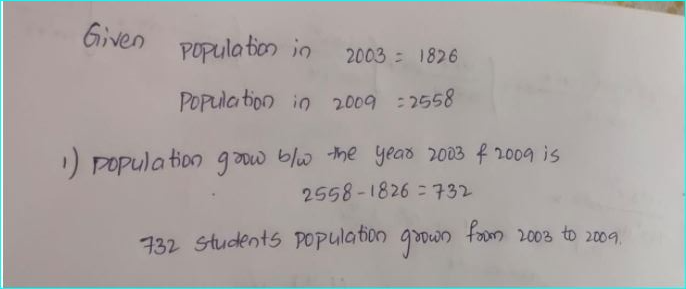 Given population in 2003 = 1826
Population in 2009 = 2558
1) population grow b/w the year 2003 & 2009 is
2558 - 1826 = 732
732 students population grown from 2003 to 2009.